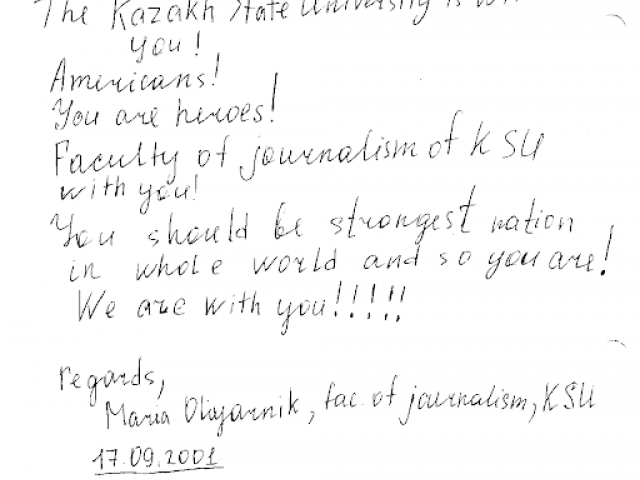 The Kazakh State University is
you!
Americans!
You are heroes!
Faculty of journalism of KSU
with you!
You should be strongest nation
in whole world and so you are!
We are with you!!!!!
regards,
Maria Oliyarnik, fac. of journalism, KSU
17.09.2001